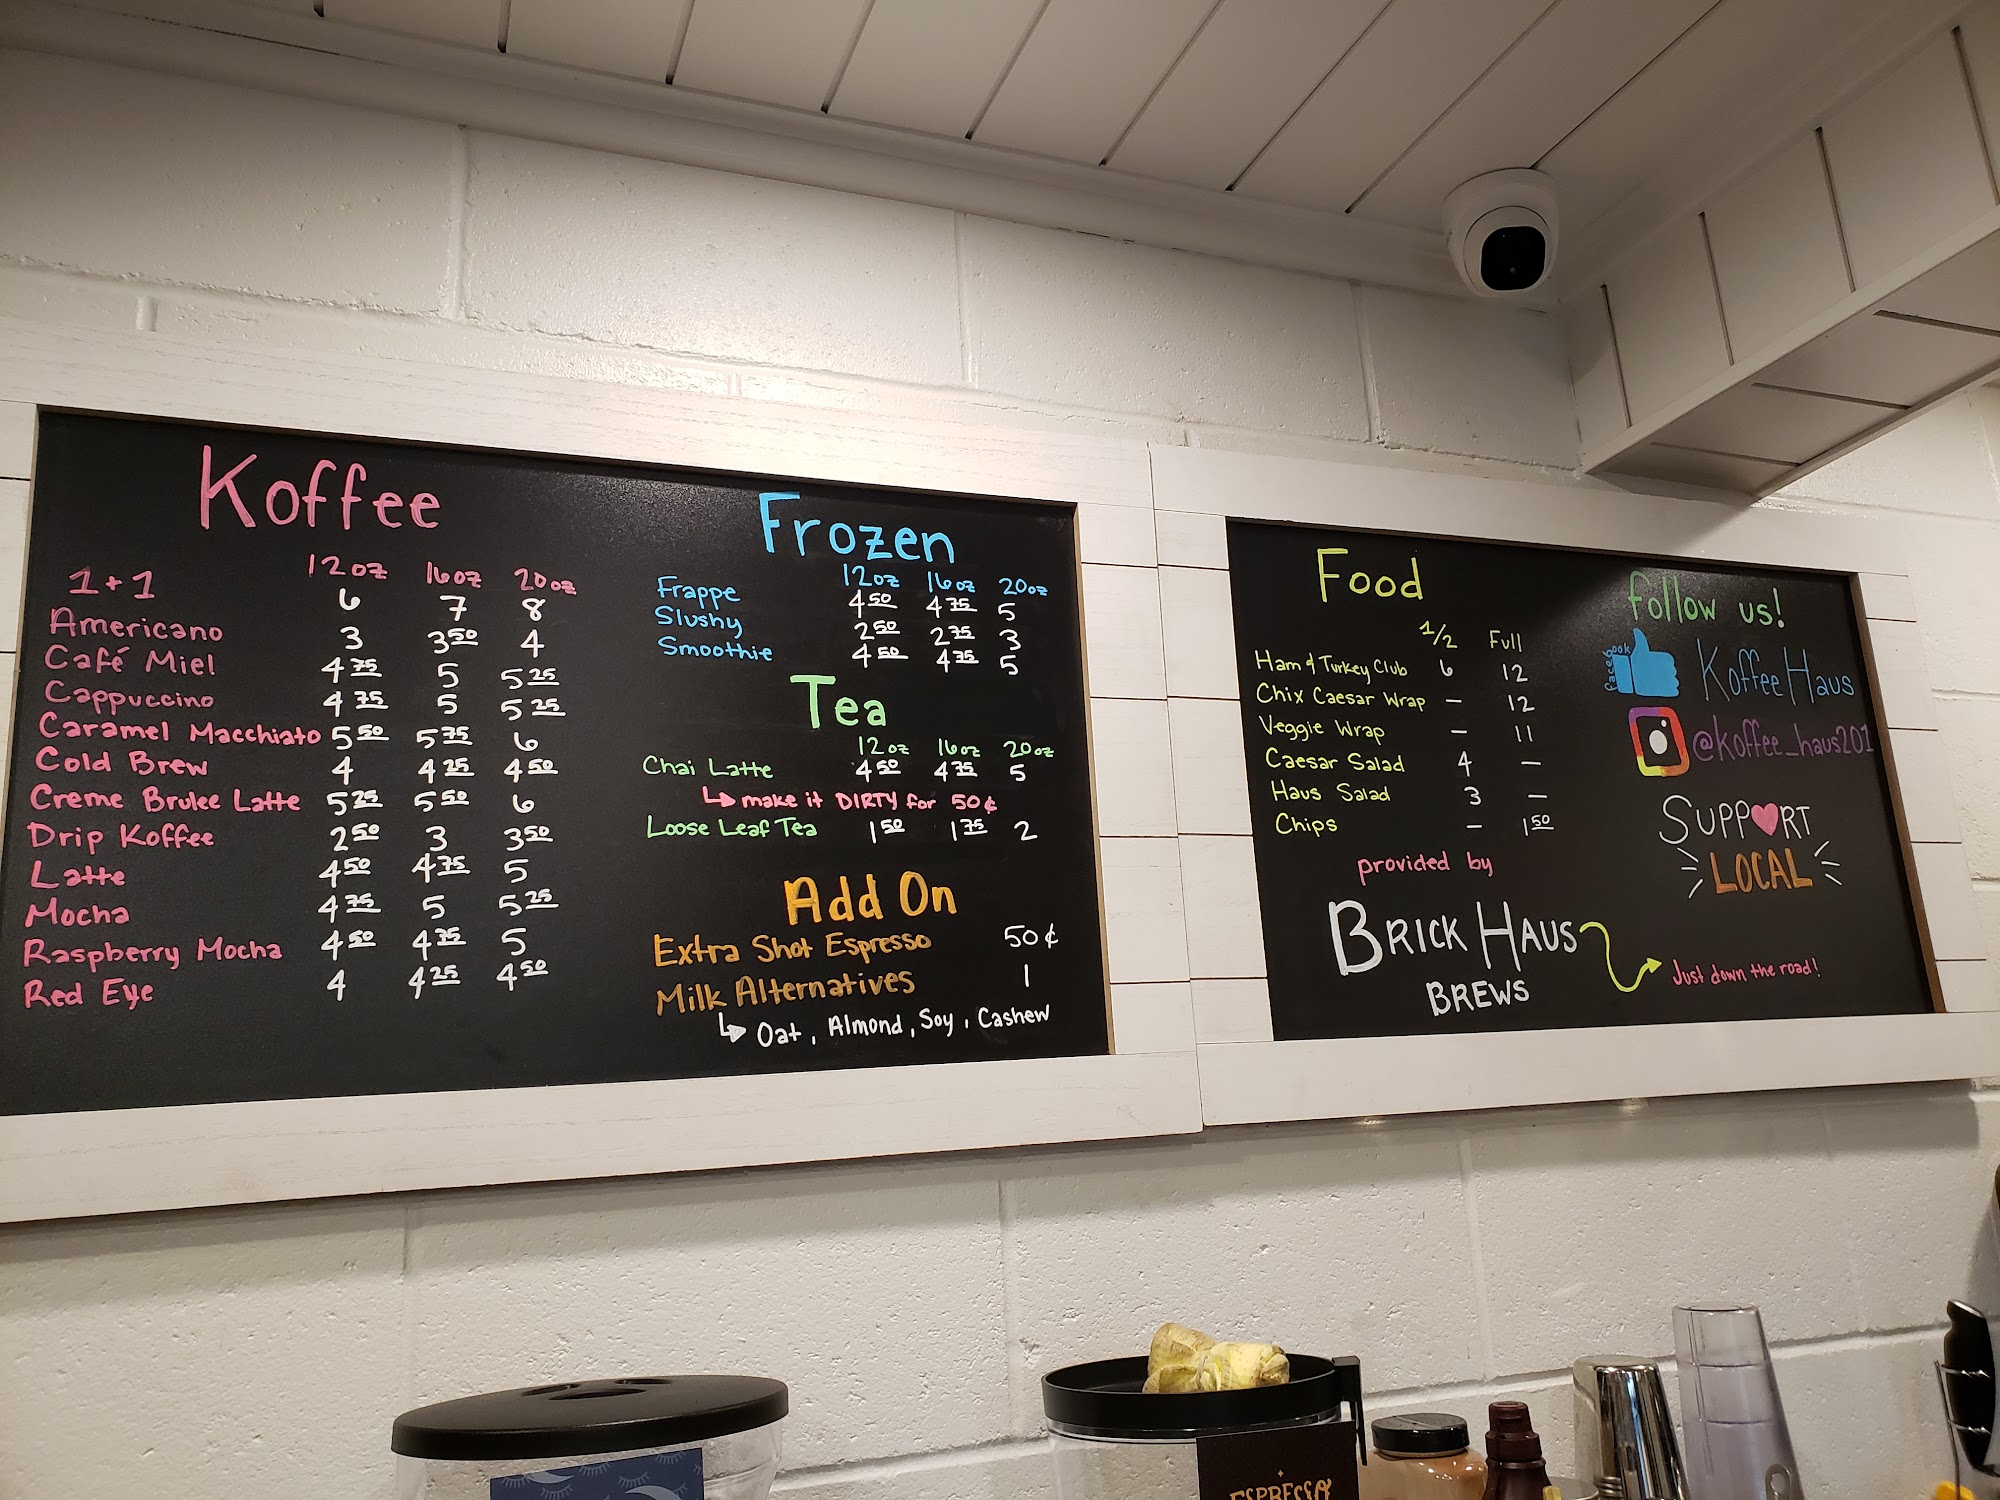 Koffee
12oz 16oz 20oz
1+1 6 7 8
Americano 3 3 50 4
Café Miel 4 75 5 5 25
Cappuccino 4 75 5 5 25
Caramel Macchiato 5 50 5 75 6
Cold Brew 4 4 25 4 50
Creme Brulee Latte 5 25 5 50 6
Drip Koffee 2 50 3 3 50
Latte 4 50 4 75 5
Mocha 4 75 5 5 25
Raspberry Mocha 4 50 4 75 5
Red Eye 4 4 25 4 50
Frozen
12oz 16oz 20oz
Frappe 4 50 4 75 5
Slushy 2 50 2 75 3
Smoothie 4 50 4 75 5
Tea
12oz 16oz 20oz
Chai Latte 4 50 4 75 5
make it DIRTY for 50¢
Loose Leaf Tea 1 50 1 75 2
Add On
Extra Shot Espresso 50¢
Milk Alternatives 1
Oat, Almond, Soy, Cashew
Food
1/2 Full
Ham & Turkey Club 6 12
Chix Caesar Wrap — 12
Veggie Wrap — 11
Caesar Salad 4 —
Haus Salad 3 —
Chips — 1 50
provided by
BRICK HAUS
BREWS
Just down the road!
follow us!
facebook
Koffee Haus
@Koffee_haus201
SUPPORT
LOCAL
ESPRESSO